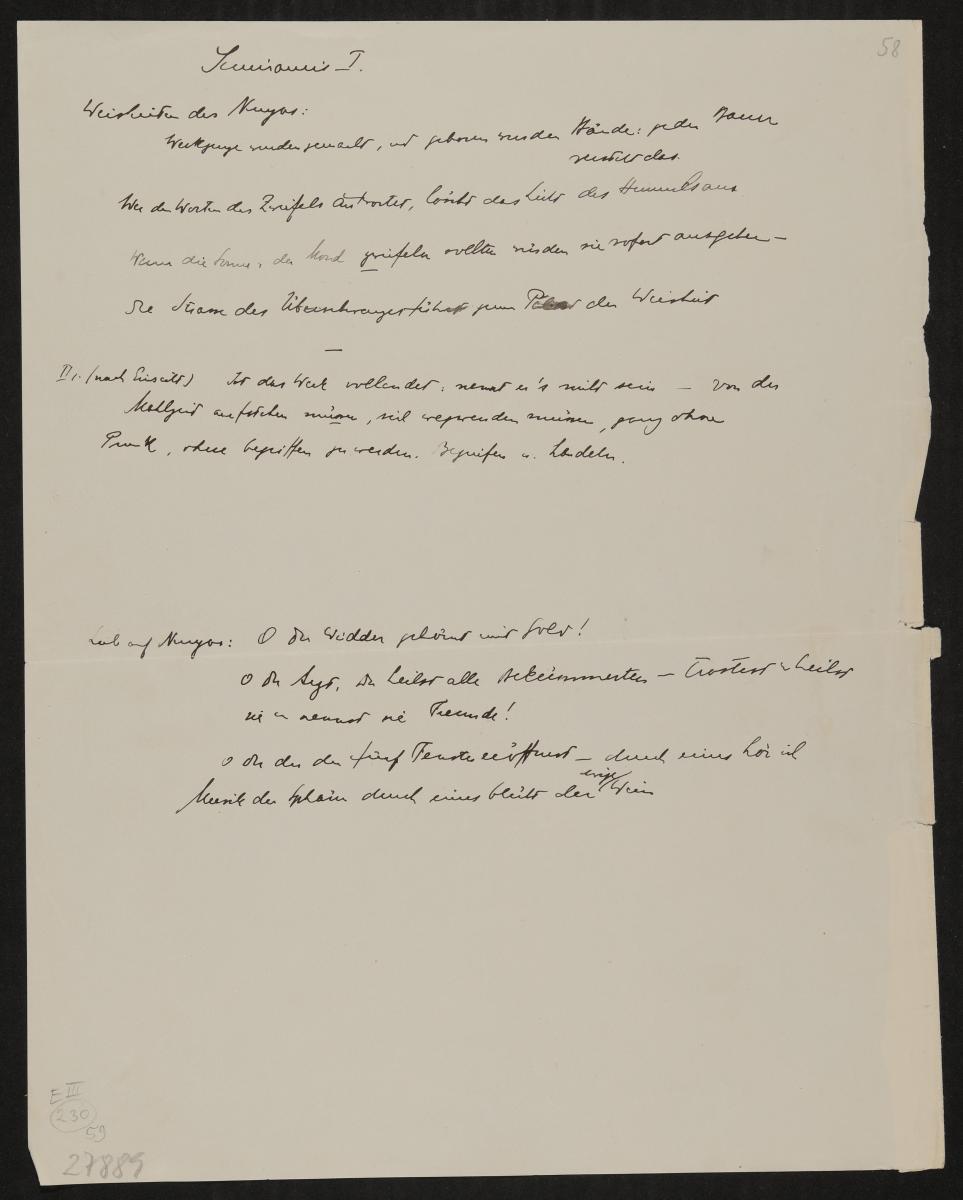 58
Semiramis I.
Weisheiten des Ninyas:
Werkzeuge wurden gemacht, und geboren wurden Hände: jeder Bauer
versteht das.
Wer den Worten des Zweifels antwortet, löscht das Licht des Himmels aus
Wenn die Sonne, der Mond zweifeln wollten würden sie sofort ausgehen –
Die Strasse des Überschwanges führt zum Palast der Weisheit
II. (nach Einsicht) Ist das Werk vollendet: nennt er's nicht sein – von der
Mahlzeit aufstehen müssen, sich wegwenden müssen, ganz ohne
Prunk, ohne begriffen zu werden. Begreifen u. Handeln.
Lob auf Ninyas: O du Widder gehörnt mit Gold!
O du Arzt, du heilst alle Bekümmerten – tröstest u heilst
sie u nennst sie Freunde!
O du der du fünf Fenster eröffnest – durch eines hör ich
ewige
Musik der Sphären durch eines blüht der Wein
E III
230
59
27889